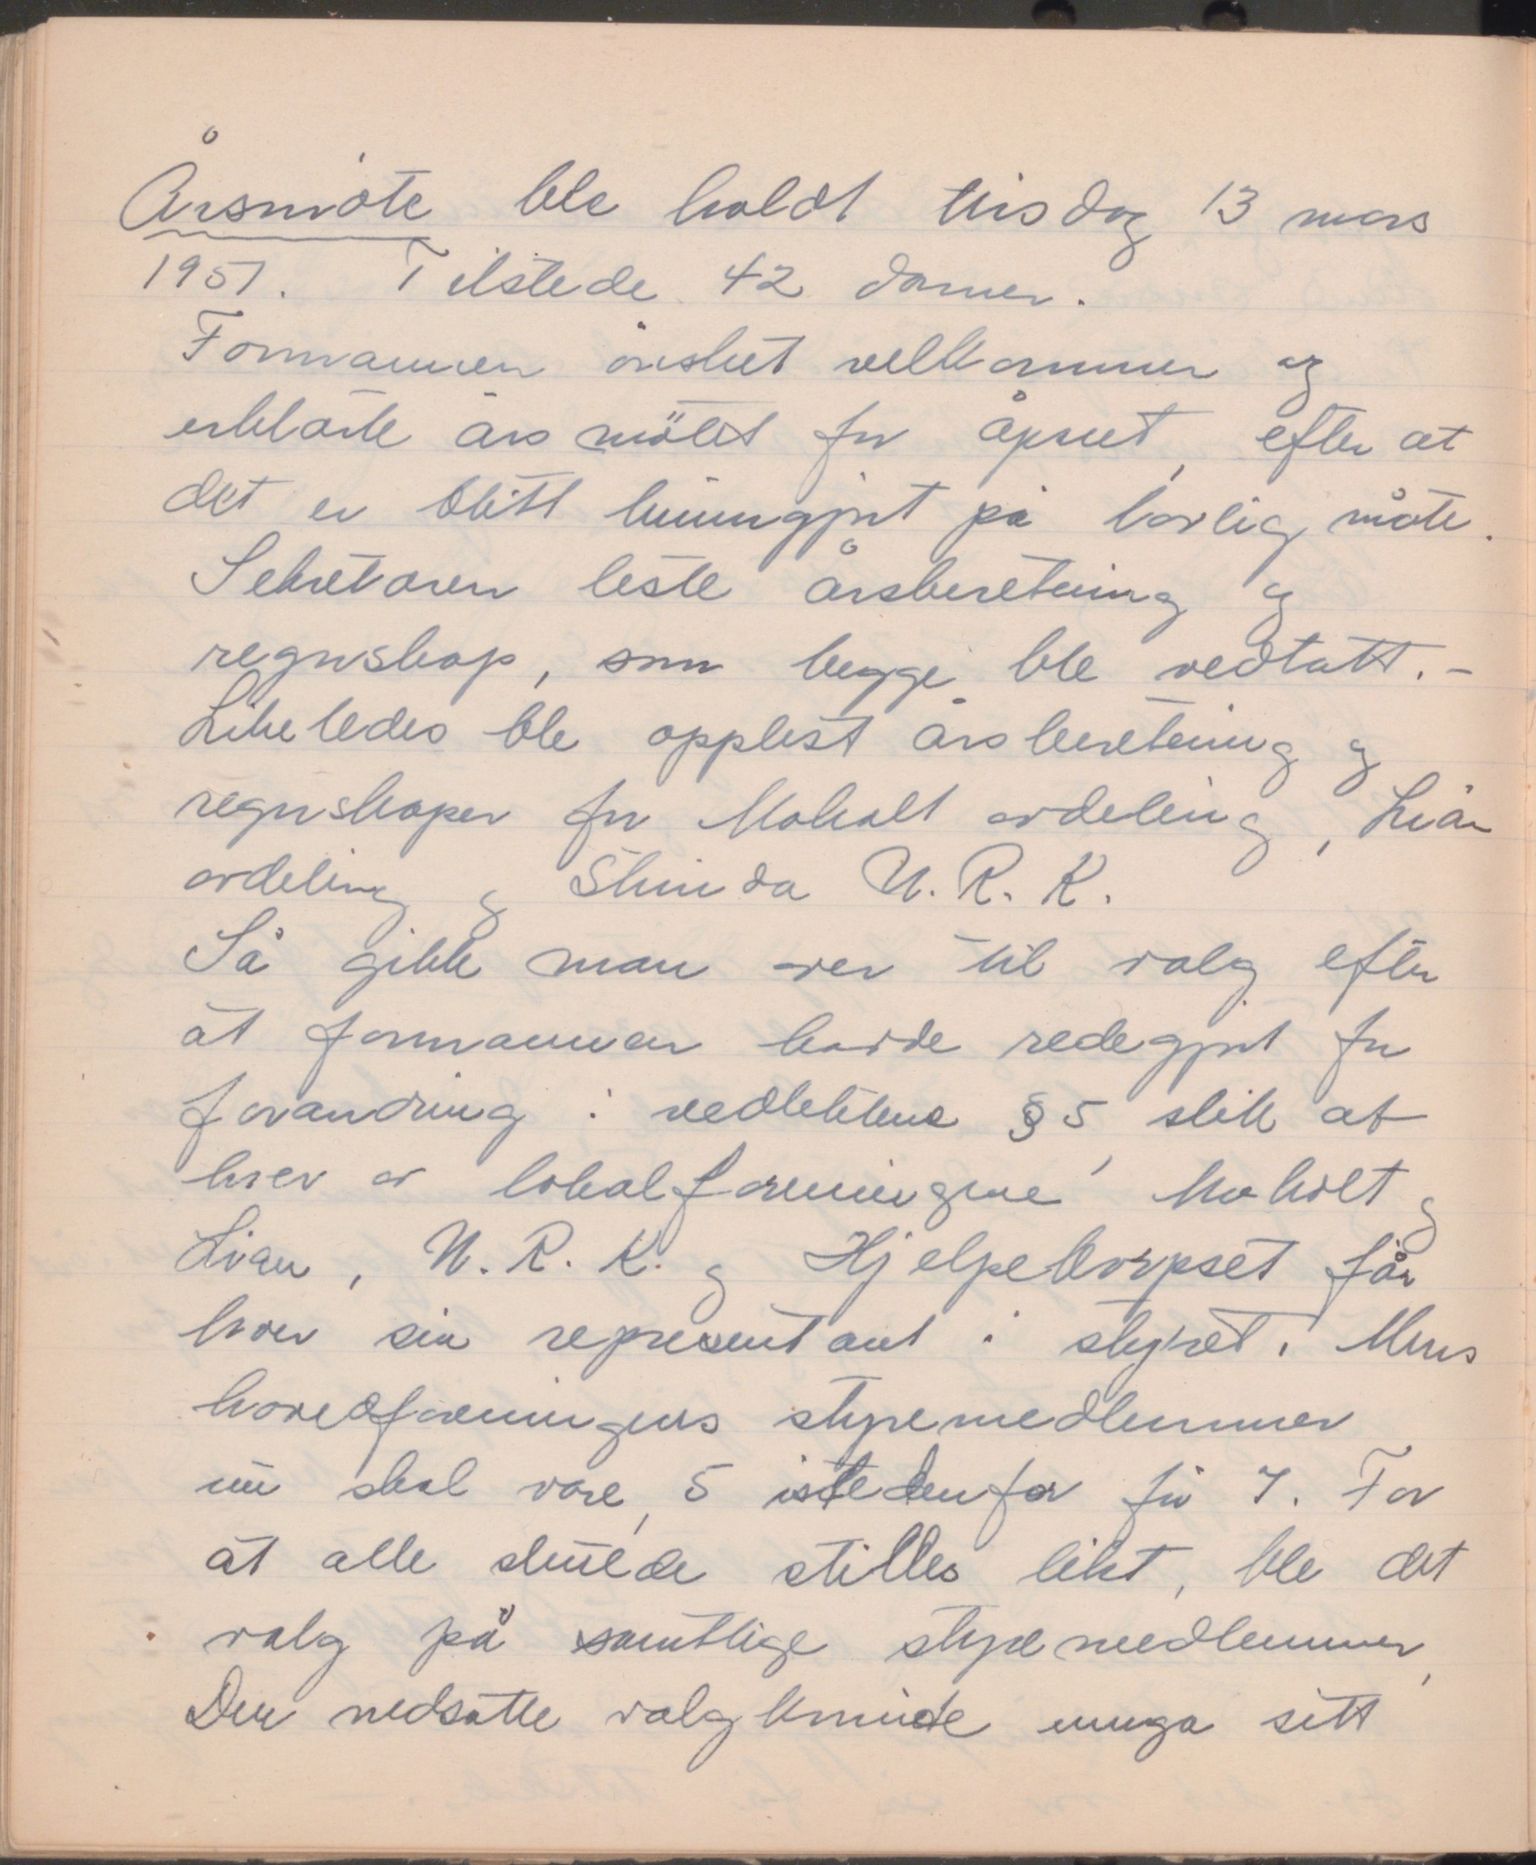 Årsmøte ble holdt tirsdag 13 mars
1951. Tilstede 42 damer.
Formannen ønsket velkommen og
erklærte årsmøtet for åpnet, efter at
det er blitt kunngjort på lovlig måte.
Sekretæren leste årsberetning og
regnskap, som begge ble vedtatt. -
Likeledes ble opplest årsberetning og
regnskaper for Moholt avdeling, Lian
avdeling og Strinda U. R. K.
Så gikk man over til valg efter
at formannen hadde redegjort for
forandring i vedtektene § 5, slik at
hver av lokalforeningene, Moholt og
Lian, U. R. K. og Hjelpekorpset får
hver sin representant i styret. Mens
hovedforeningens styremedlemmer
nu skal være, 5 istedenfor før 7. For
at alle skulde stilles likt, ble det
valg på samtlige styremedlemmer,
Den nedsatte valgkomite sitt